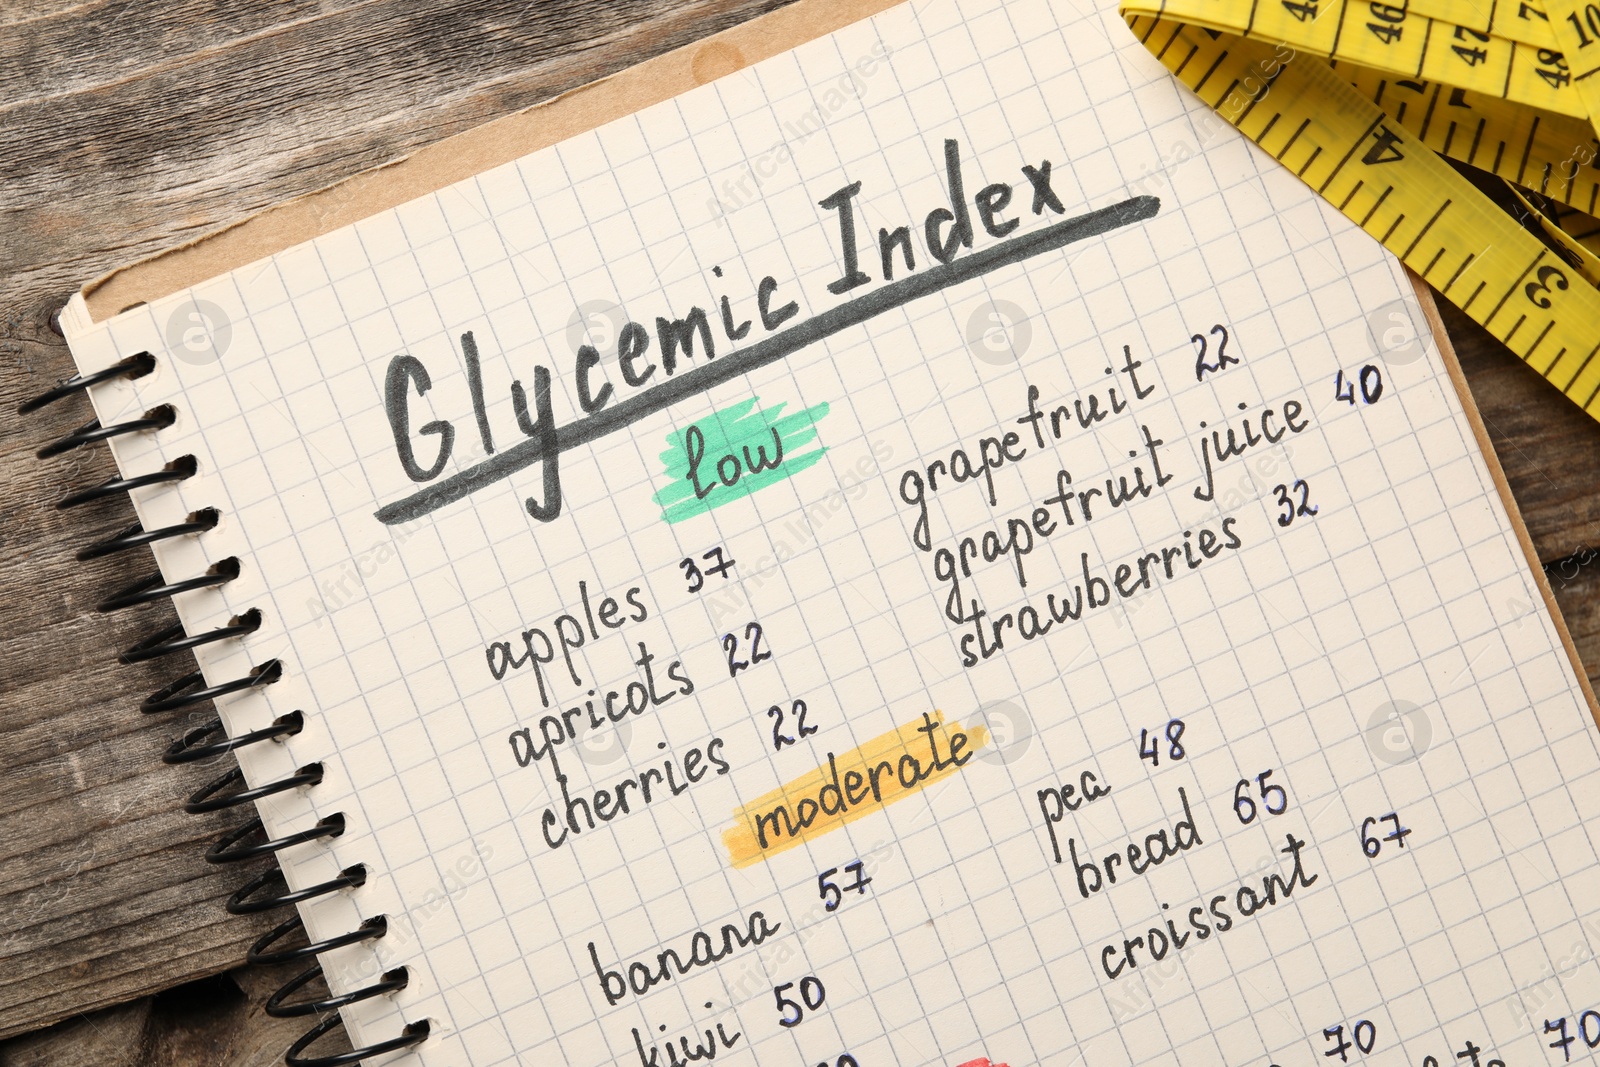 Glycemic Index
low
apples 37
apricots 22
cherries 22
grapefruit 22
grapefruit juice 40
strawberries 32
moderate
banana 57
kiwi 50
pea 48
bread 65
croissant 67
70
70
45
46
47
48
4
3
10
Africa Images
a